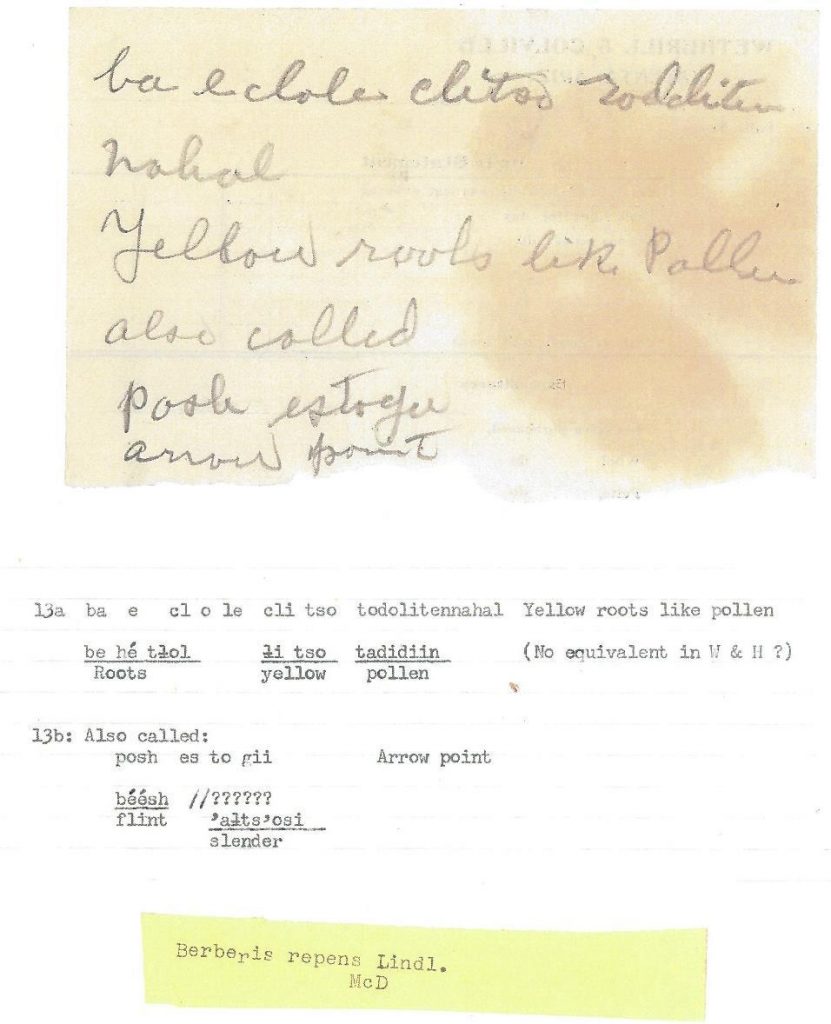 WETHERILL & COLVILLE
ba e clole clitso todoliten
nahal
Yellow roots like Pollen
also called
posh estogii
arrow point
13a ba e cl o le cli tso todolitennahal Yellow roots like pollen
be hé tłol łi tso tadidiin (No equivalent in W & H ?)
Roots yellow pollen
13b: Also called:
posh es to gii Arrow point
béésh //??????
flint 'ałts'osi
slender
Berberis repens Lindl.
McD